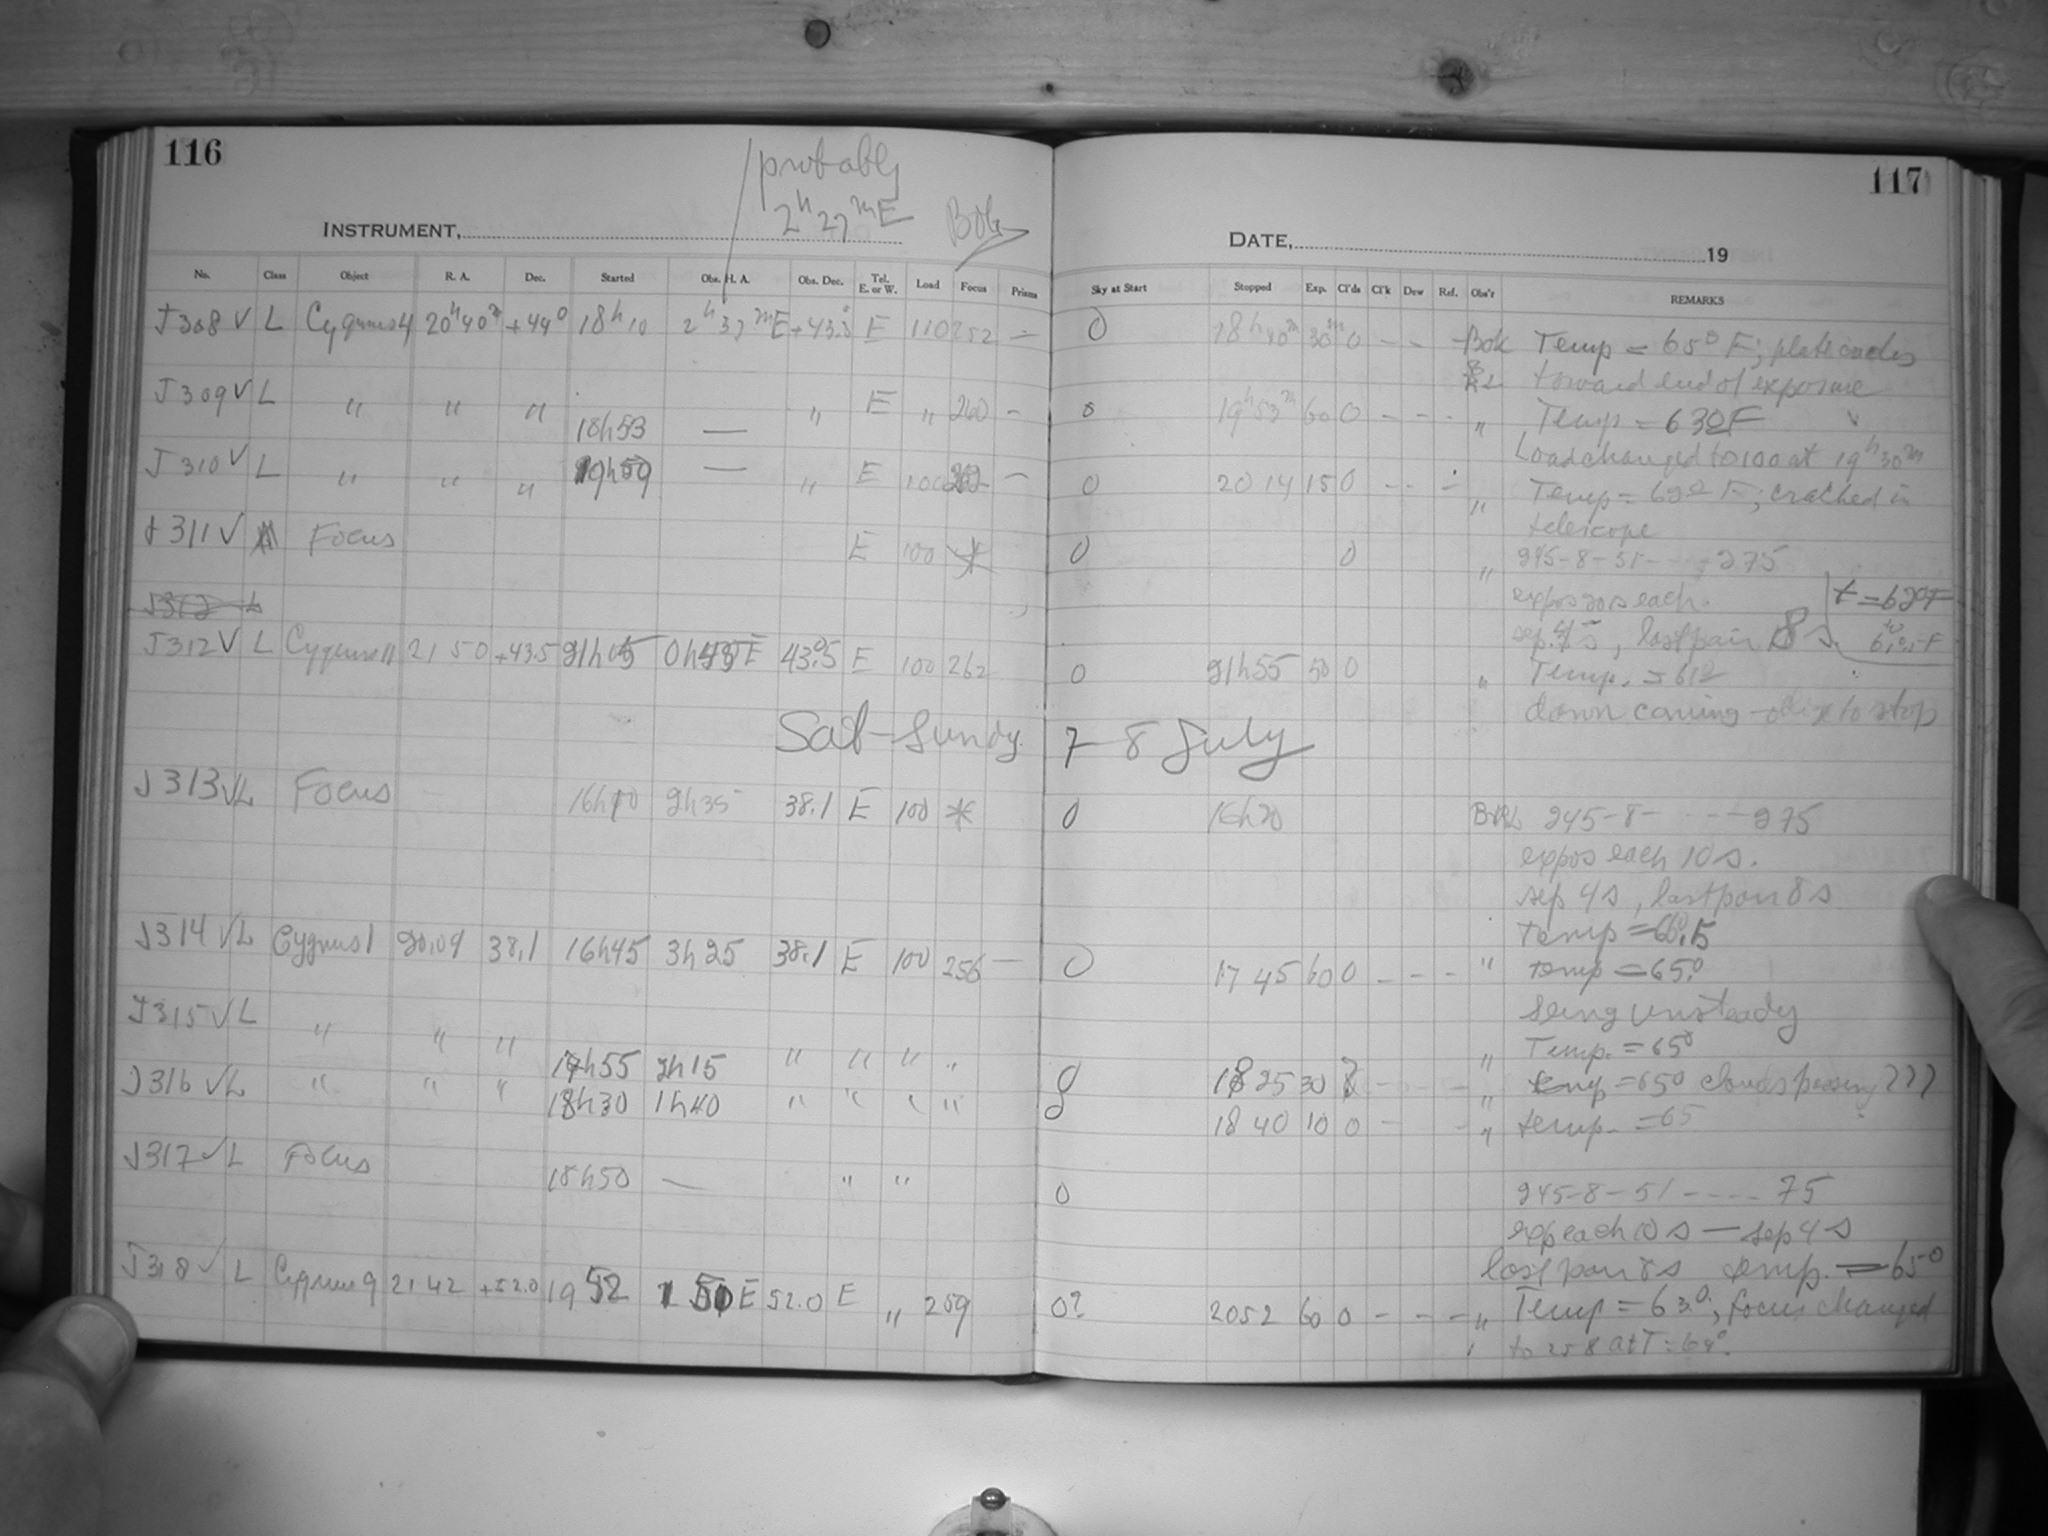 116
117
probably
2h 27m E
Bok
INSTRUMENT,
DATE, 19
No. Class Object R. A. Dec. Started Obs. H. A. Obs. Dec. Tel. E. or W. Load Focus Prisms Sky at Start Stopped Exp. Cl'ds Cl'k Dew Ref. Obs'r REMARKS
J308 √ L Cygnus 4 20h40m +44° 18h10 2h 37mE +43.5 E 110 252 – 0 18h40m 30m 0 – – – Bok Temp = 65° F; plate cracks
toward end of exposure
J309 √ L " " " 18h53 — " E " 260 – 0 19h53m 60 0 – – – " Temp = 63° F
Load changed to 100 at 19h30m
J310 √ L " " " 19h59 — " E 100 262 – 0 20 14 15 0 – – – " Temp = 62° F; cracked in
telescope
J311 √ Focus E 100 * 0 0 " 245-8-51 - - - 275
expos 20s each. t = 62°F
sep. 4s, last pair 8 s.
J312 L
J312 √ L Cygnus 11 21 50 +43.5 21h05 0h45 E 43.5 E 100 262 0 21h55 50 0 " Temp. = 61°
dawn coming – to stop
Sat – Sundy. 7-8 July
J313 √ L Focus 16h10 2h35 38.1 E 100 * 0 16h20 B+RL 245-8- - - - 275
expos each 10 s.
sep 4s, last pair 8 s
Temp = 66.5
J314 √ L Cygnus 1 20,09 38,1 16h45 3h25 38.1 E 100 256 – 0 17 45 60 0 – – – " temp = 65.°
Seeing unsteady
J315 √ L " " " 17h55 2h15 " " " " 18 25 30 – – – " Temp. = 65°
temp = 65° clouds passing ???
J316 √ L " " " 18h30 1h40 " " " " 18 40 10 0 – – " temp. = 65
J317 √ L Focus 18h50 — " " 0 245-8-51 - - - - 75
exp each 10 s — sep 4 s
last pair 8 s temp. = 65°
J318 √ L Cygnus 9 21 42 +52.0 19 52 1 50 E 52.0 E " 259 0? 2052 60 0 – – – " Temp = 63°; focus changed
to 258 at T = 64°.